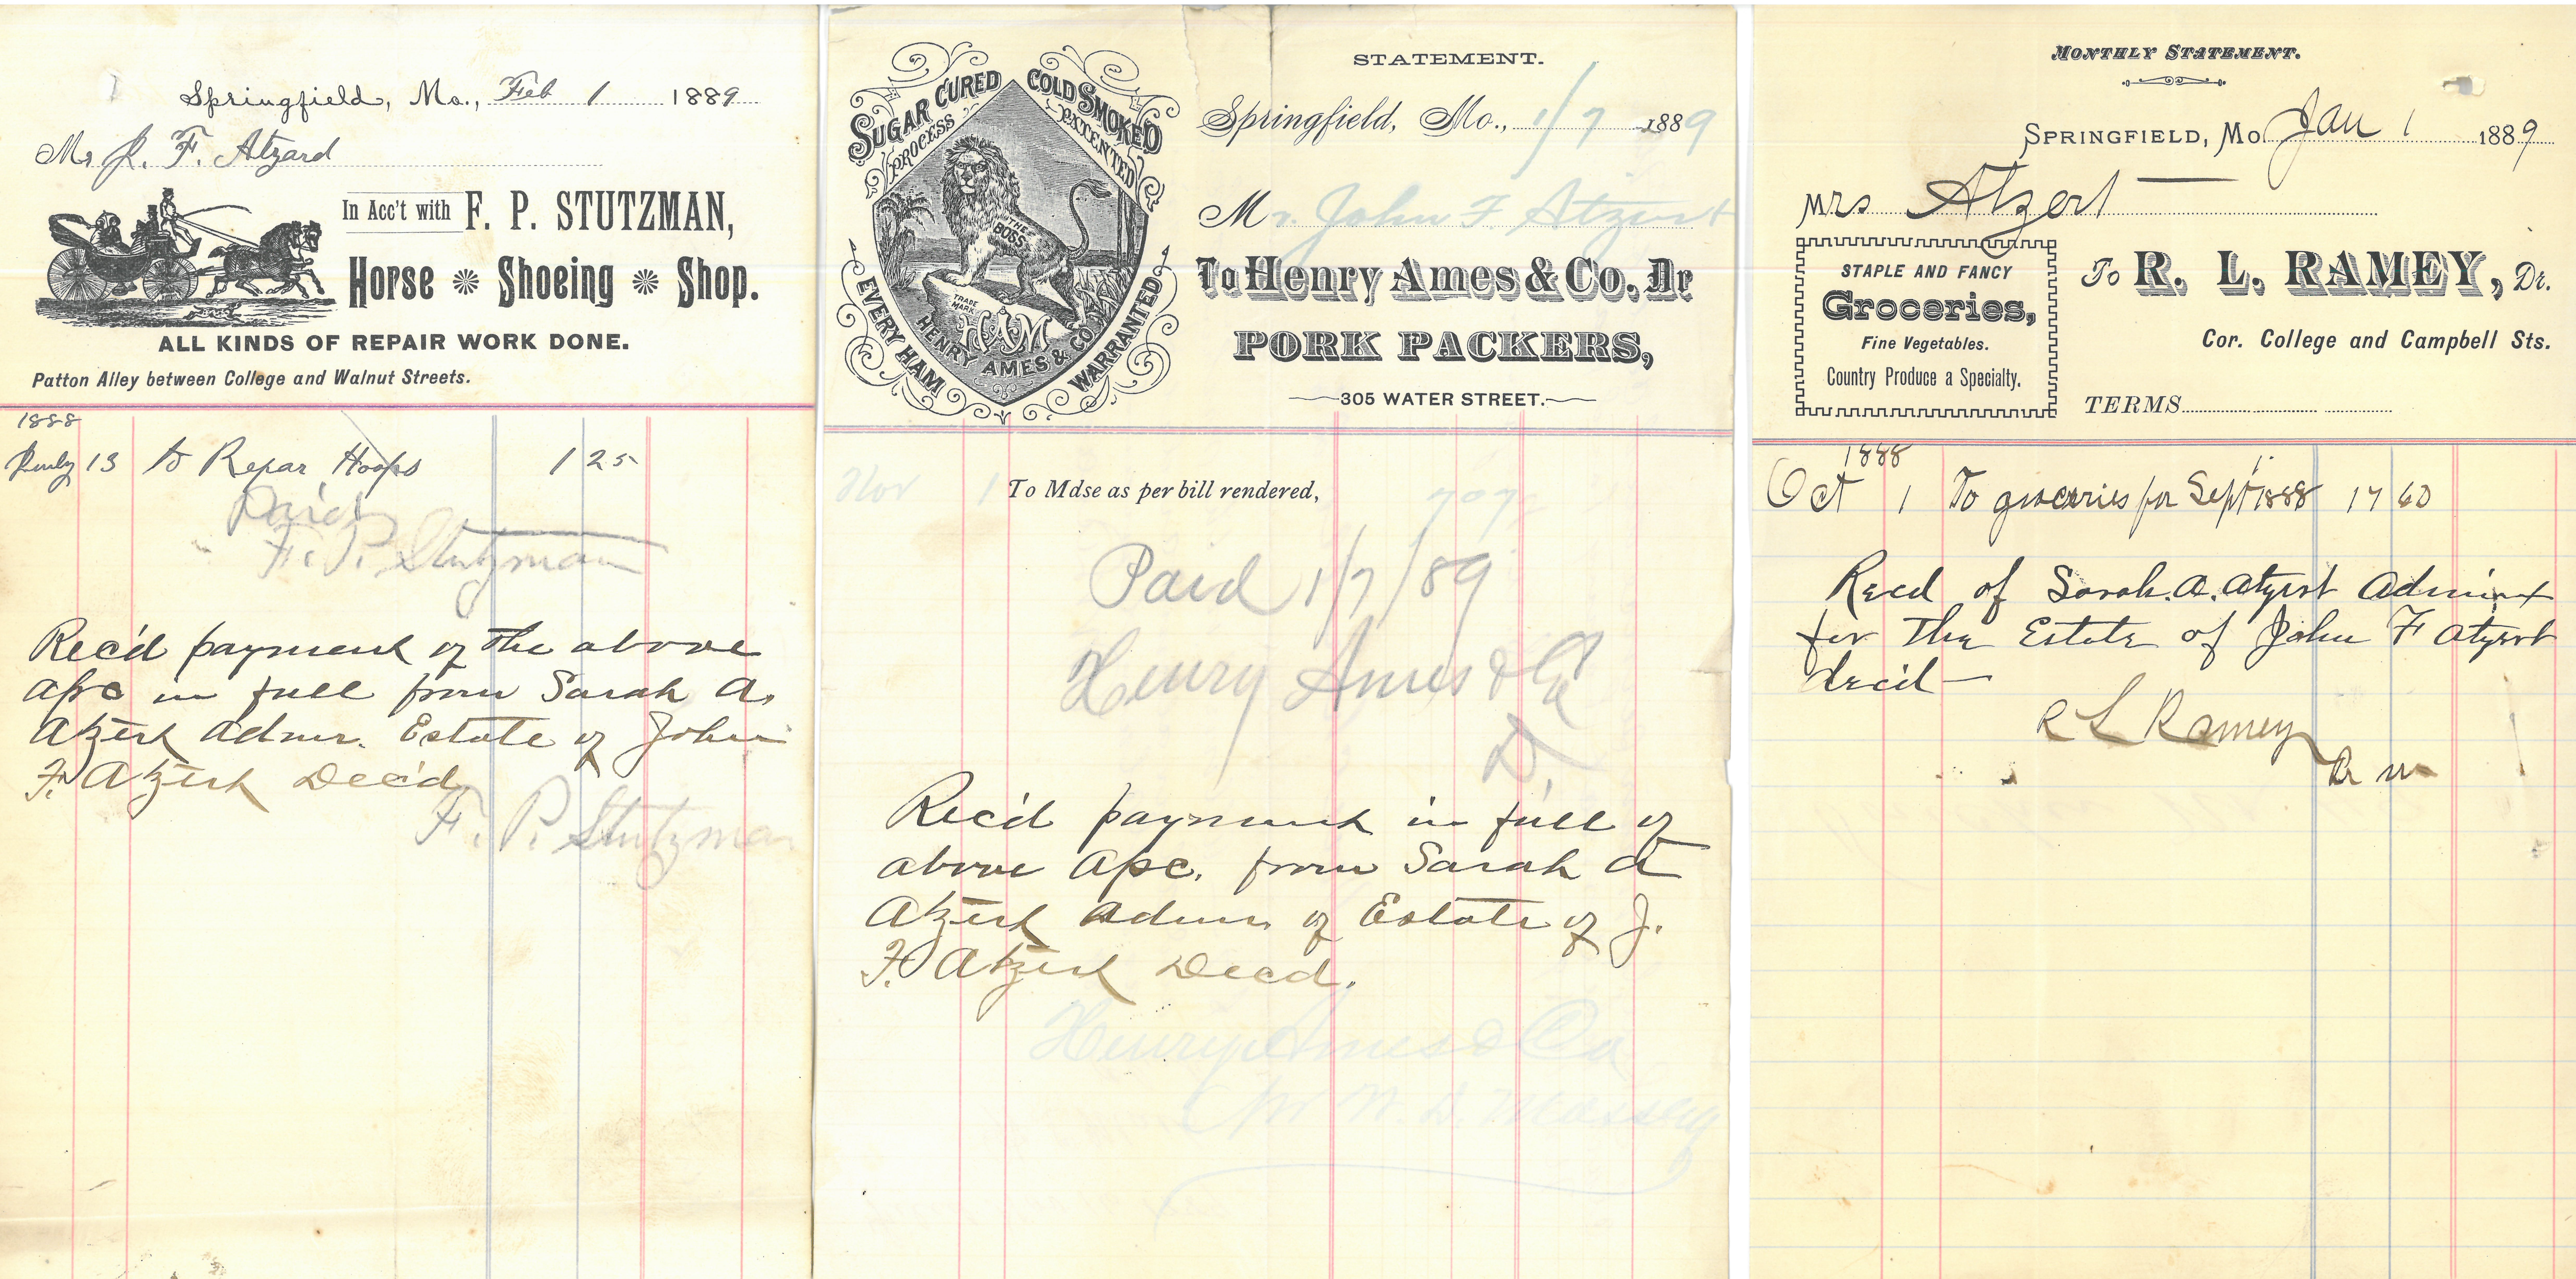 Springfield, Mo., Feb 1 1889
Mr J. F. Atzard
In Acc't with F. P. STUTZMAN,
Horse Shoeing Shop.
ALL KINDS OF REPAIR WORK DONE.
Patton Alley between College and Walnut Streets.
1888
July 13 to Repar Hoops 1 25
Paid
F. P. Stutzman
Rec'd payment of the above
a/c in full from Sarah A.
Atzert Admr. Estate of John
F. Atzert Dec'd
F. P. Stutzman
SUGAR CURED
PROCESS
COLD SMOKED
PATENTED
"THE BOSS"
TRADE MARK
HAM
HENRY AMES & CO.
EVERY HAM WARRANTED
STATEMENT.
Springfield, Mo., 1/7 1889
Mr. John F. Atzert
To Henry Ames & Co. Dr
PORK PACKERS,
305 WATER STREET.
Nov 1 To Mdse as per bill rendered, 707
Paid 1/7/89
Henry Ames & Co
D.
Rec'd payment in full of
above a/c. from Sarah A
Atzert Admr. of Estate of J.
F. Atzert Decd.
Henry Ames & Co
W. D. Massey
MONTHLY STATEMENT.
SPRINGFIELD, Mo. Jan 1 1889
Mrs Atzert
STAPLE AND FANCY
Groceries,
Fine Vegetables.
Country Produce a Specialty.
To R. L. RAMEY, Dr.
Cor. College and Campbell Sts.
TERMS
1888
Oct 1 To groceries for Sept 1888 17 60
Recd of Sarah. A. Atzert Adminx
for The Estate of John F Atzert
decd
R L Ramey